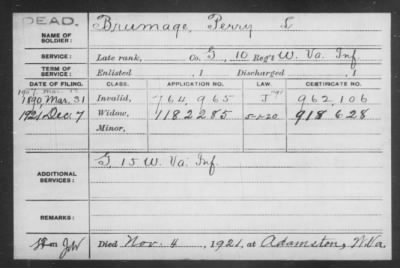 DEAD.
Brumage, Perry L
NAME OF SOLDIER:
SERVICE: Late rank, Co. G, 10 Reg't W. Va. Inf
TERM OF SERVICE: Enlisted , 1 Discharged , 1
DATE OF FILING. CLASS. APPLICATION NO. LAW. CERTIFICATE NO.
1890, Mar. 31 Invalid, 764,965 J 962,106
1921, Dec. 7 Widow, 1182285 5-1-20 918628
Minor,
ADDITIONAL SERVICES: G, 15 W. Va. Inf
REMARKS:
Died Nov. 4, 1921, at Adamston, W.Va.